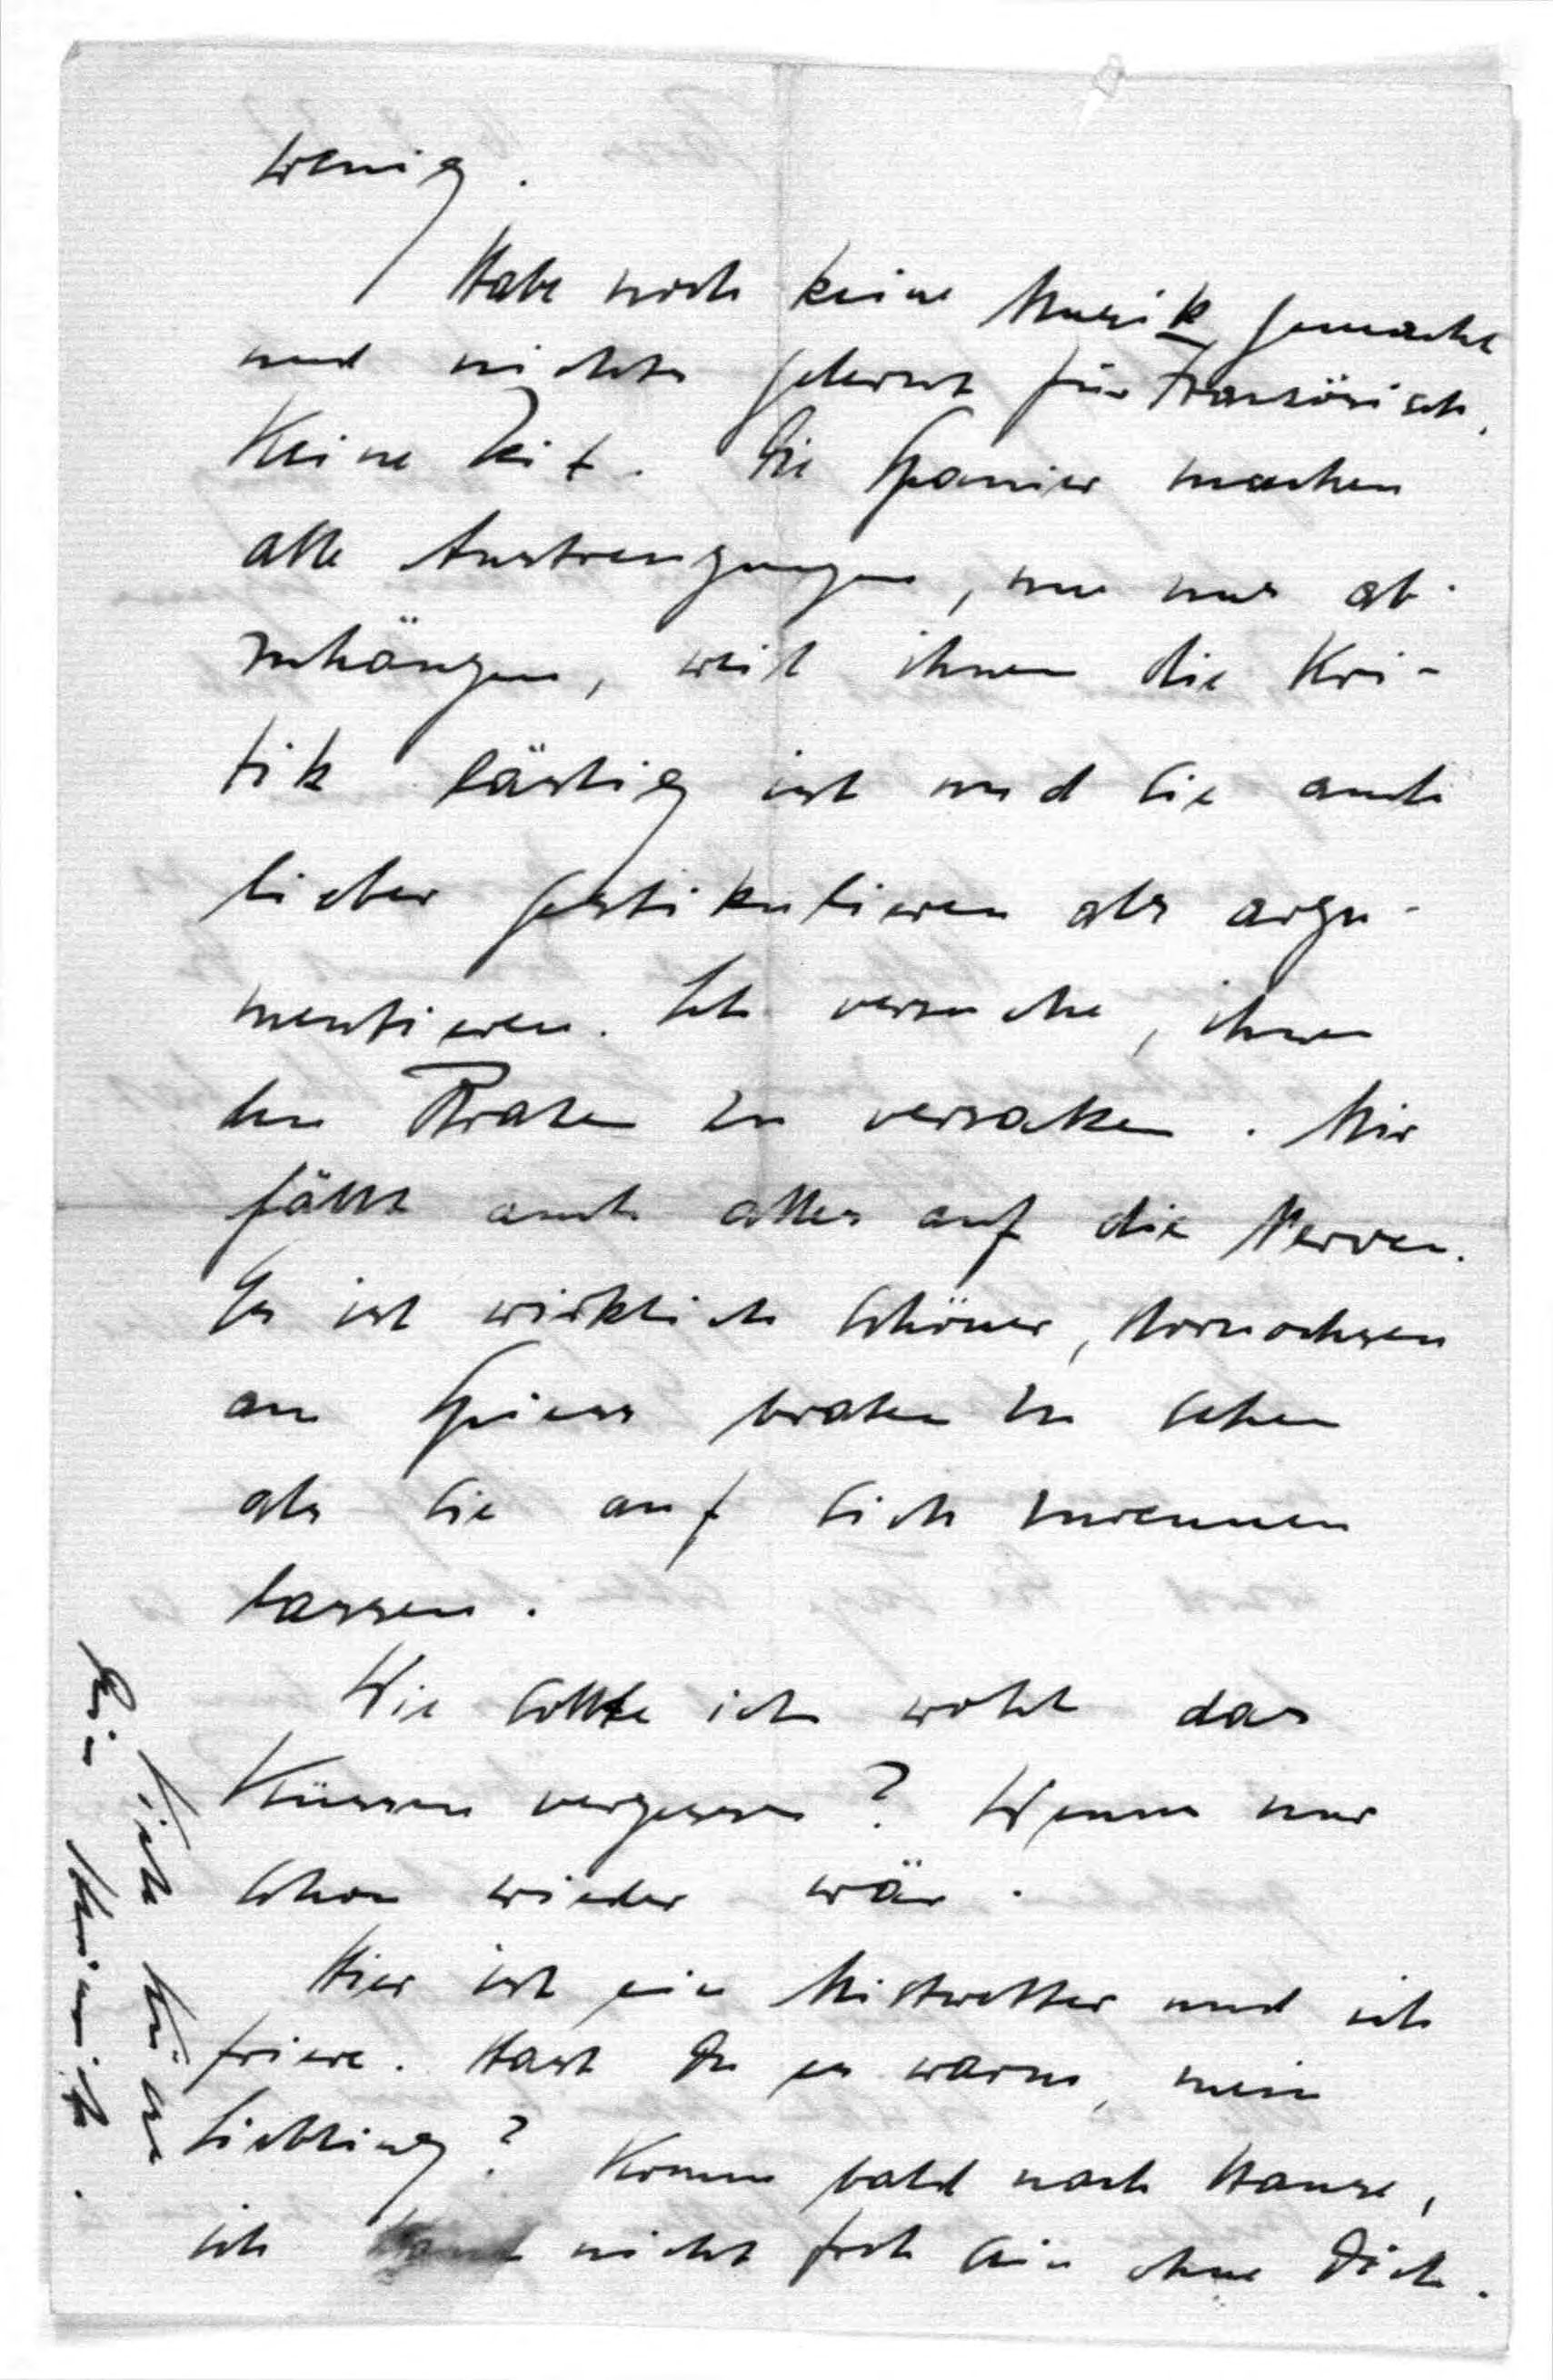 wenig.
Habe noch keine Musik gemacht
und nichts gelernt für Französisch.
Keine Zeit. Die Spanier machen
alle Anstrengungen, um uns ab-
zuhängen, weil ihnen die Kri-
tik lästig ist und sie auch
lieber gestikulieren als argu-
mentieren. Ich versuche, ihnen
den Braten zu versalzen. Mir
fällt auch alles auf die Nerven.
Es ist wirklich schöner, Hornochsen
am Spiess braten zu sehen
als sie auf sich zurennen
lassen.
Wie sollte ich wohl das
Küssen vergessen? Wenns nur
schon wieder wär.
Hier ist ein Mistwetter und ich
friere. Hast Du es warm, mein
Liebling? Komm bald nach Hause,
ich kann nicht froh sein ohne Dich.
Viele Küsse
Dein